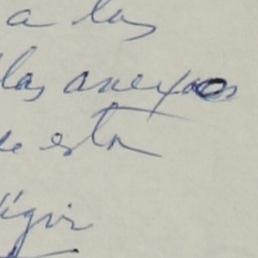 a las
las anexos
de esta